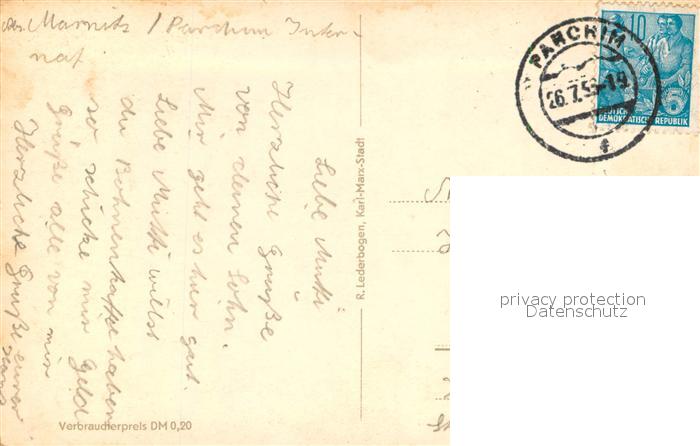 Marnitz / Parchim Inter-
nat.
Liebe Mutti
Herzliche Grüße
von deinen Sohn.
Mir geht es hier gut.
Liebe Mutti willst
du Bohnenkaffe haben
so schicke mir Geld
Grüße alle von mir
Herzliche Grüße eurer
Verbraucherpreis DM 0,20
R. Lederbogen, Karl-Marx-Stadt
PARCHIM
26.7.5
f
10
5
DEUTSCHE
DEMOKRATISCHE REPUBLIK
privacy protection
Datenschutz